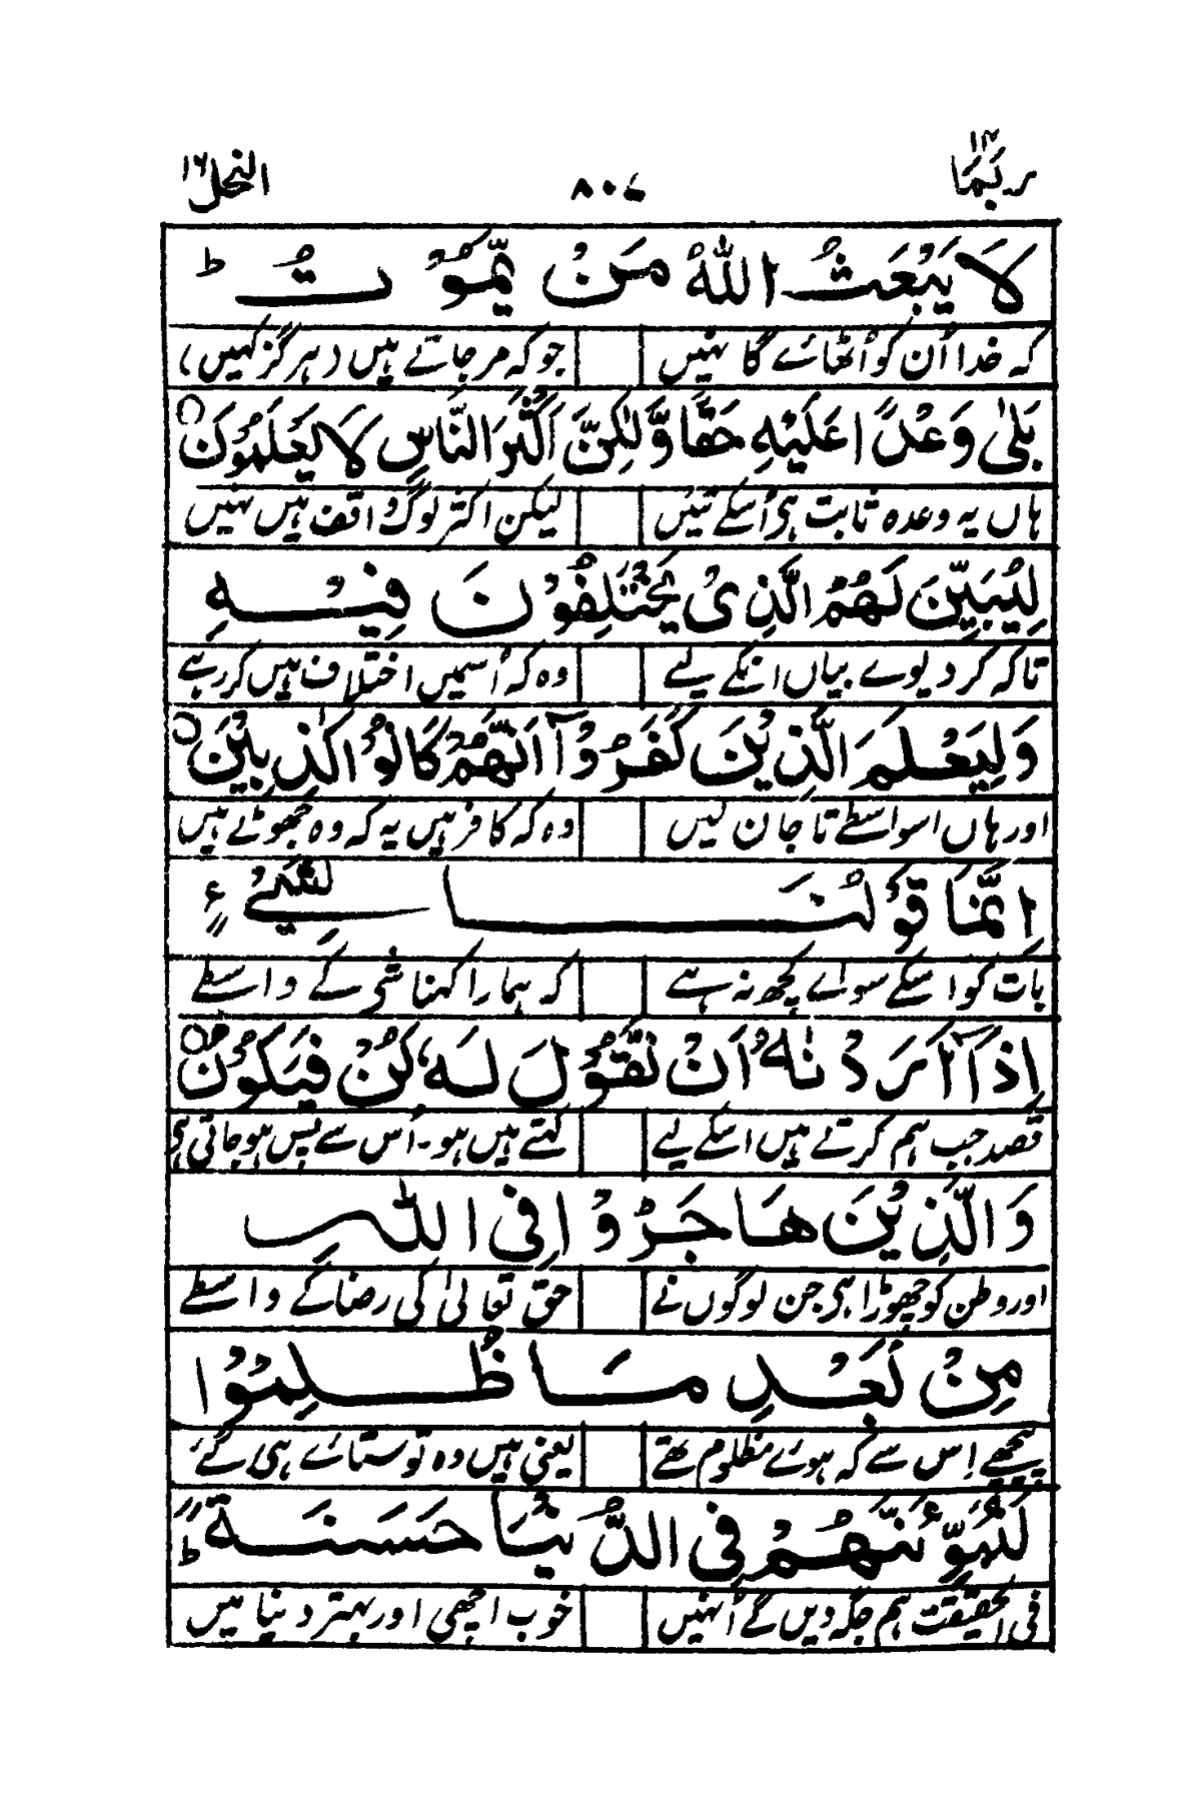 ربما ۱۴ ۸۰۷ النحل ۱۶
لَا يَبْعَثُ اللّٰهُ مَنْ يَّمُوْتُ ؕ
کہ خدا اُن کو اُٹھائے گا نہیں جو کہ مرجاتے ہیں (ہرگز کہیں)
بَلٰى وَعْدًا عَلَيْهِ حَقًّا وَّلٰكِنَّ اَكْثَرَ النَّاسِ لَا يَعْلَمُوْنَ ۙ
ہاں یہ وعدہ ثابت ہی اُسکے تئیں لیکن اکثر لوگ واقف ہیں نہیں
لِيُبَيِّنَ لَهُمُ الَّذِىْ يَخْتَلِفُوْنَ فِيْهِ
تاکہ کر دیوے بیاں انکے لیے وہ کہ اُسمیں اختلاف ہیں کر رہے
وَلِيَعْلَمَ الَّذِيْنَ كَفَرُوْۤا اَنَّهُمْ كَانُوْا كٰذِبِيْنَ ۝
اور ہاں اسواسطے تا جان لیں وہ کہ کافر ہیں یہ کہ وہ جھوٹے ہیں
اِنَّمَا قَوْلُنَا لِشَىْءٍ
بات کو اسکے سوائے کچھ نہ ہے کہ ہمارا کہنا شی کے واسطے
اِذَاۤ اَرَدْنٰهُ اَنْ نَّقُوْلَ لَهٗ كُنْ فَيَكُوْنُ ۝
قصد جب ہم کرتے ہیں اسکے لیے کہتے ہیں ہو۔ اُس سے پس ہو جاتی ہی
وَالَّذِيْنَ هَاجَرُوْا فِى اللّٰهِ
اور وطن کو چھوڑا ہی جن لوگوں نے حق تعالیٰ کی رضا کے واسطے
مِنْۢ بَعْدِ مَا ظُلِمُوْا
پیچھے اِس سے کہ ہوئے مظلوم تھے یعنی ہیں وہ تو ستائے ہی گئے
لَنُبَوِّئَنَّهُمْ فِى الدُّنْيَا حَسَنَةً ؕ
فی الحقیقت ہم جگہ دیں گے اُنہیں خوب اچھی اور بہتر دنیا میں